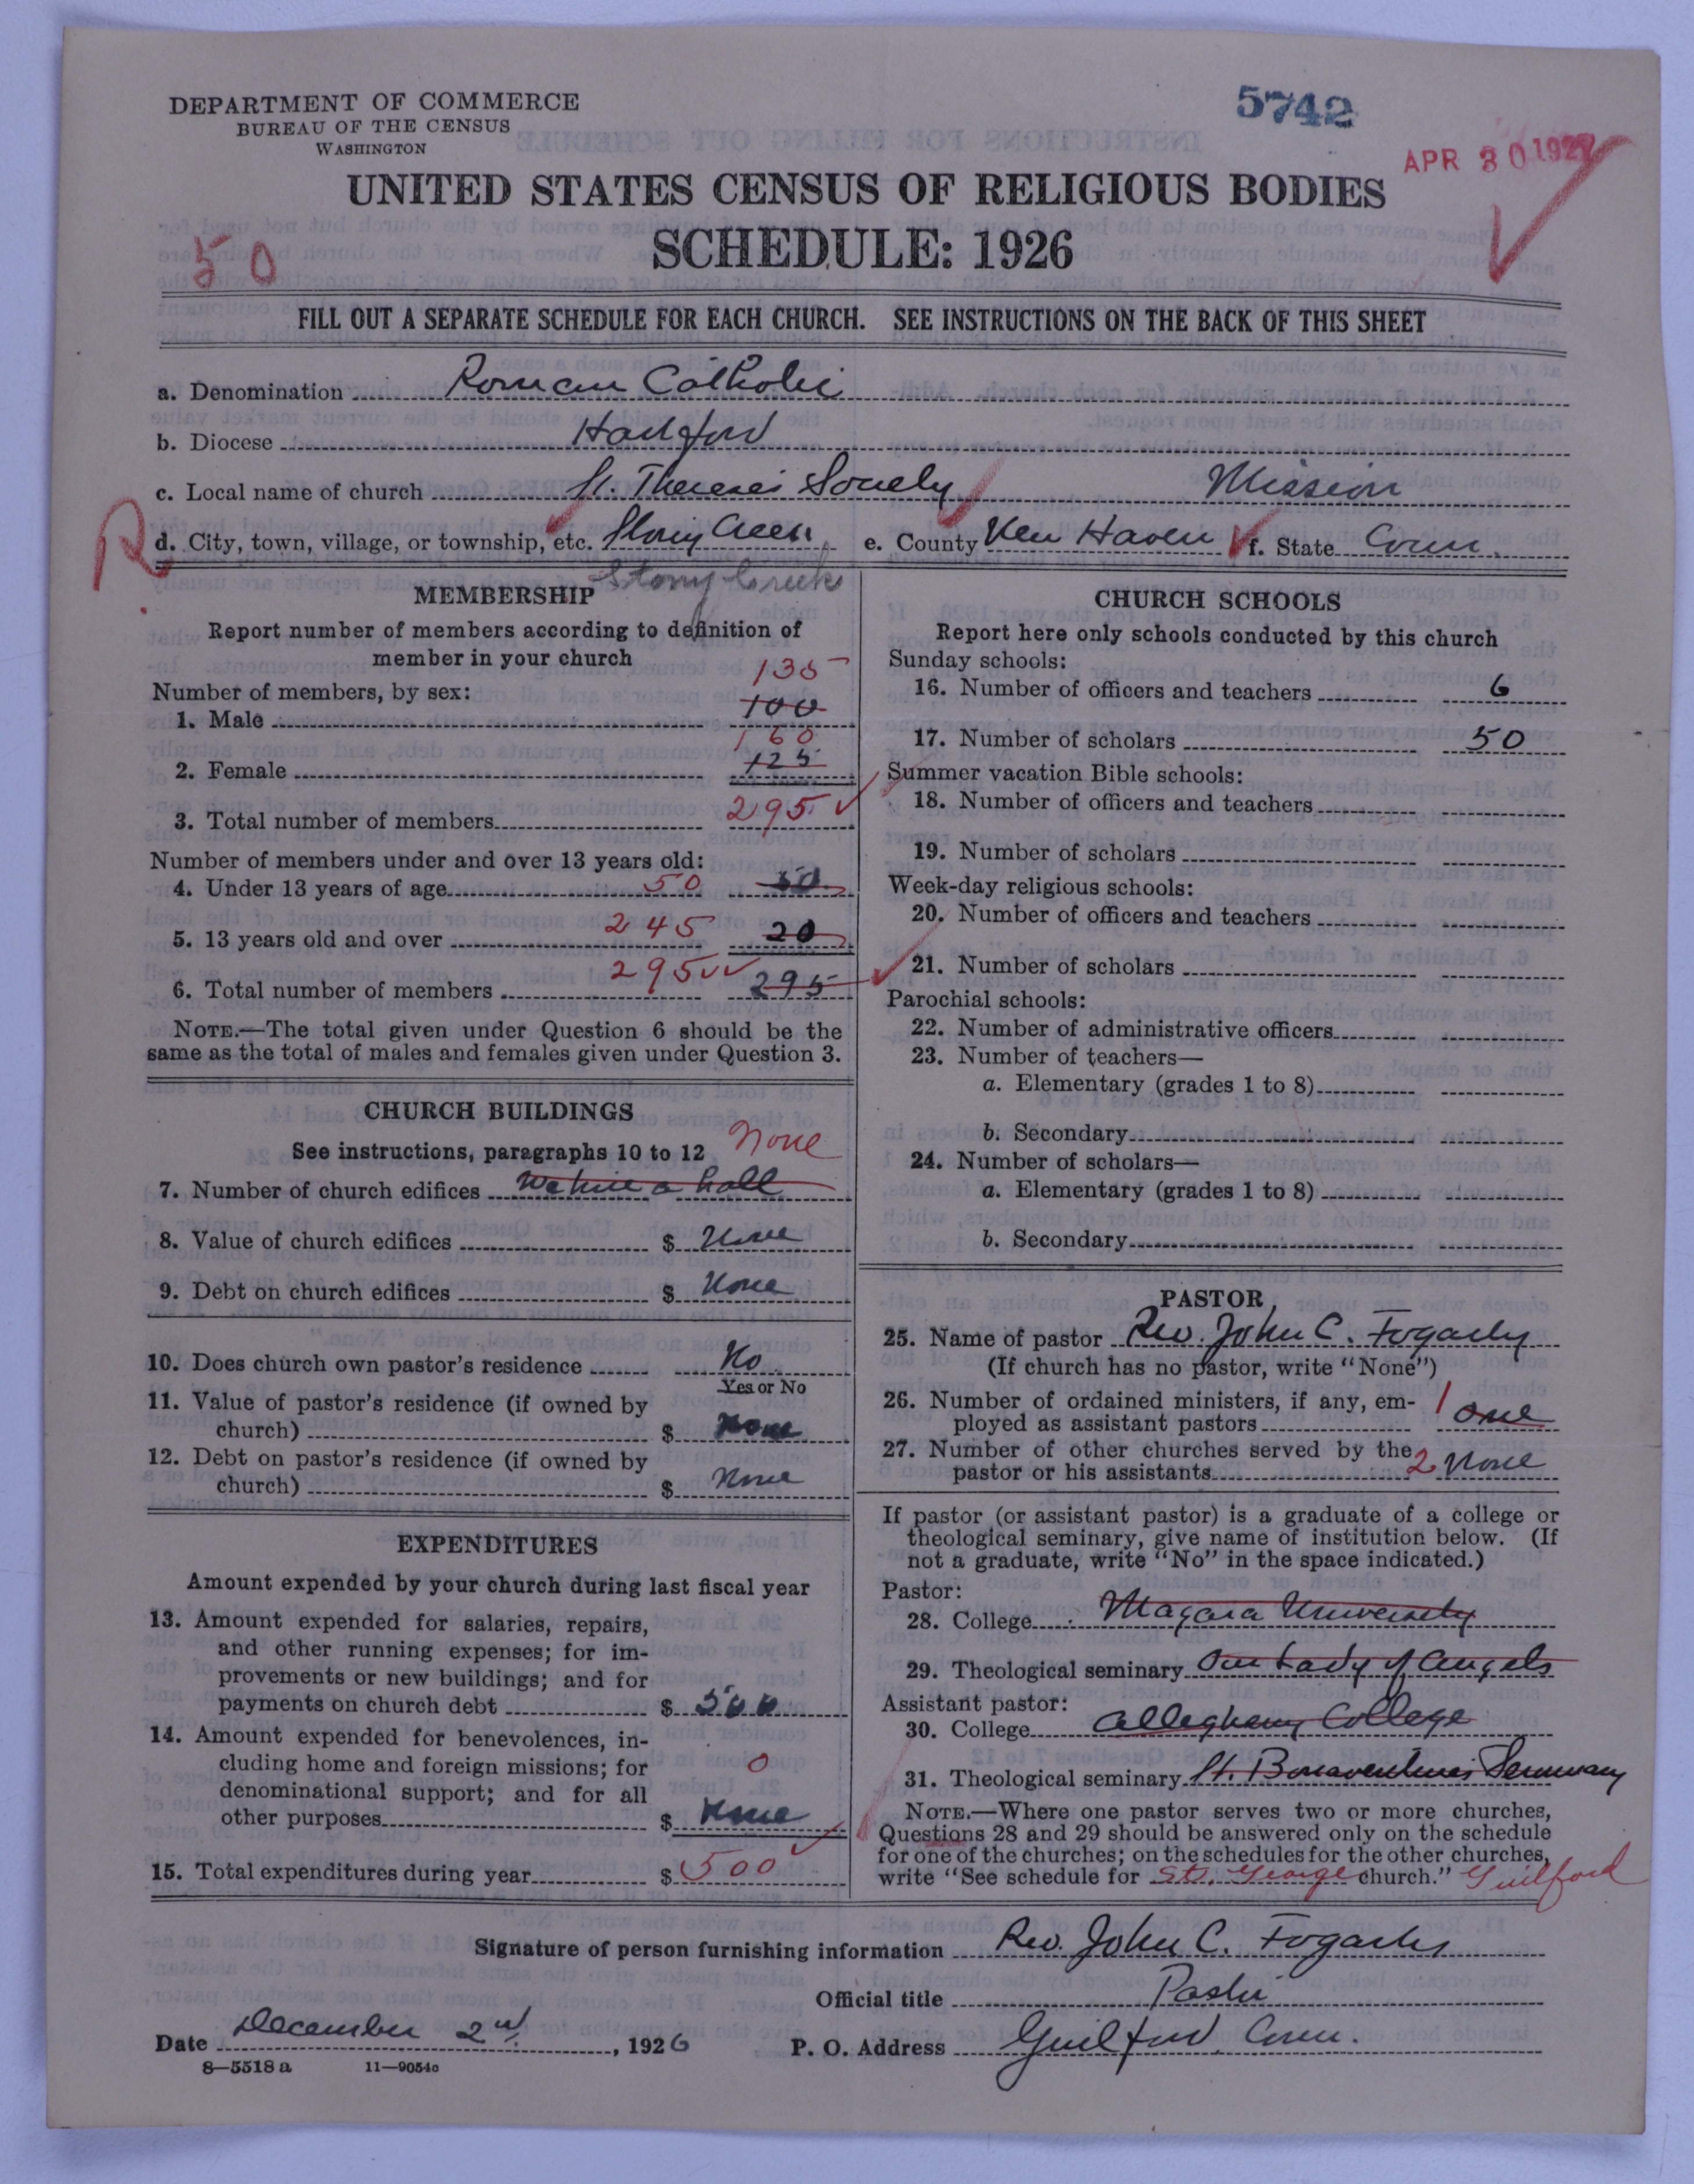 DEPARTMENT OF COMMERCE
BUREAU OF THE CENSUS
WASHINGTON
5742
APR 30 1927
UNITED STATES CENSUS OF RELIGIOUS BODIES
SCHEDULE: 1926
50
FILL OUT A SEPARATE SCHEDULE FOR EACH CHURCH. SEE INSTRUCTIONS ON THE BACK OF THIS SHEET
a. Denomination Roman Catholic
b. Diocese Hartford
c. Local name of church St. Therese's Society Mission
R d. City, town, village, or township, etc. Stony Creek e. County New Haven f. State Conn.
Stony Creek
MEMBERSHIP
Report number of members according to definition of
member in your church
Number of members, by sex:
135
1. Male 100
160
2. Female 125
3. Total number of members 295
Number of members under and over 13 years old:
4. Under 13 years of age 50 50
5. 13 years old and over 245 20
6. Total number of members 295 295
NOTE.—The total given under Question 6 should be the
same as the total of males and females given under Question 3.
CHURCH BUILDINGS
See instructions, paragraphs 10 to 12 None
7. Number of church edifices We hire a hall
8. Value of church edifices $ None
9. Debt on church edifices $ None
10. Does church own pastor's residence No
Yes or No
11. Value of pastor's residence (if owned by
church) $ None
12. Debt on pastor's residence (if owned by
church) $ None
EXPENDITURES
Amount expended by your church during last fiscal year
13. Amount expended for salaries, repairs,
and other running expenses; for im-
provements or new buildings; and for
payments on church debt $ 500
14. Amount expended for benevolences, in-
cluding home and foreign missions; for 0
denominational support; and for all
other purposes $ None
15. Total expenditures during year $ 500
CHURCH SCHOOLS
Report here only schools conducted by this church
Sunday schools:
16. Number of officers and teachers 6
17. Number of scholars 50
Summer vacation Bible schools:
18. Number of officers and teachers
19. Number of scholars
Week-day religious schools:
20. Number of officers and teachers
21. Number of scholars
Parochial schools:
22. Number of administrative officers
23. Number of teachers—
a. Elementary (grades 1 to 8)
b. Secondary
24. Number of scholars—
a. Elementary (grades 1 to 8)
b. Secondary
PASTOR
25. Name of pastor Rev. John C. Fogarty
(If church has no pastor, write "None")
26. Number of ordained ministers, if any, em-
ployed as assistant pastors 1 one
27. Number of other churches served by the
pastor or his assistants 2 None
If pastor (or assistant pastor) is a graduate of a college or
theological seminary, give name of institution below. (If
not a graduate, write "No" in the space indicated.)
Pastor:
28. College Niagara University
29. Theological seminary Our Lady of Angels
Assistant pastor:
30. College Allegheny College
31. Theological seminary St. Bonaventures Seminary
NOTE.—Where one pastor serves two or more churches,
Questions 28 and 29 should be answered only on the schedule
for one of the churches; on the schedules for the other churches,
write "See schedule for St. George church." Guilford
Signature of person furnishing information Rev. John C. Fogarty
Official title Pastor
Date December 2nd, 1926 P. O. Address Guilford, Conn.
8—5518a 11—9054c